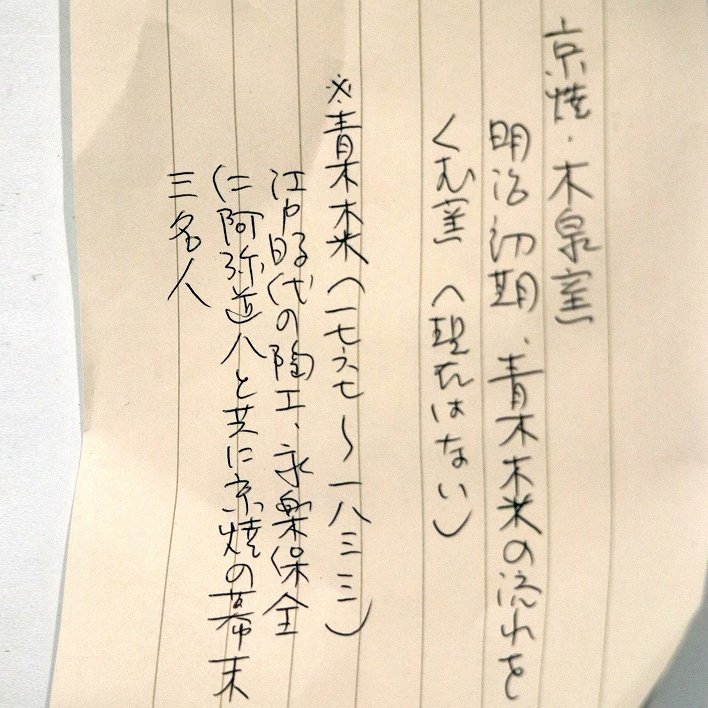 京焼・木泉窯
明治初期、青木木米の流れを
くむ窯（現在はない）
※青木木米（一七六七〜一八三三）
江戸時代の陶工、永楽保全
仁阿弥道八と共に京焼の幕末
三名人